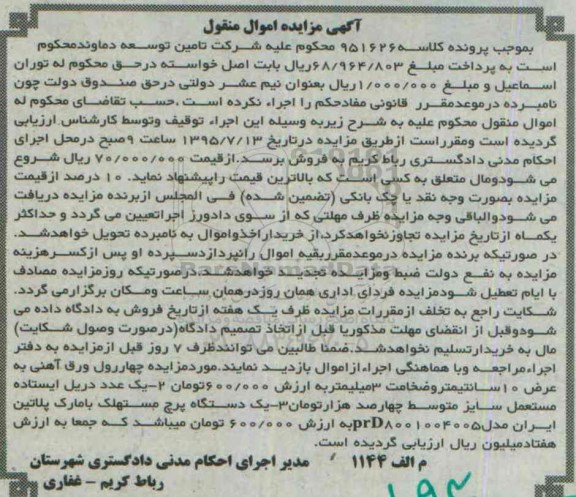 آگهی مزایده اموال منقول
بموجب پرونده کلاسه۹۵۱۶۲۶ محکوم علیه شرکت تامین توسعه دماوندمحکوم
است به پرداخت مبلغ ۶۸/۹۶۴/۸۰۳ریال بابت اصل خواسته درحق محکوم له توران
اسماعیل و مبلغ ۱/۰۰۰/۰۰۰ریال بعنوان نیم عشر دولتی درحق صندوق دولت چون
نامبرده درموعدمقرر قانونی مفادحکم را اجراء نکرده است ،حسب تقاضای محکوم له
اموال منقول محکوم علیه به شرح زیربه وسیله این اجراء توقیف وتوسط کارشناس ارزیابی
گردیده است ومقرراست ازطریق مزایده درتاریخ ۱۳۹۵/۷/۱۳ ساعت ۹صبح درمحل اجرای
احکام مدنی دادگستری رباط کریم به فروش برسد.ازقیمت ۷۰/۰۰۰/۰۰۰ ریال شروع
می شودومال متعلق به کسی است که بالاترین قیمت راپیشنهاد نماید. ۱۰ درصد ازقیمت
مزایده بصورت وجه نقد یا چک بانکی (تضمین شده) فی المجلس ازبرنده مزایده دریافت
می شودوالباقی وجه مزایده ظرف مهلتی که از سوی دادورز اجراتعیین می گردد و حداکثر
یکماه ازتاریخ مزایده تجاوزنخواهدکرد،از خریداراخذواموال به نامبرده تحویل خواهدشد.
در صورتیکه برنده مزایده درموعدمقرربقیه اموال رانپردازدسپرده او پس ازکسرهزینه
مزایده به نفع دولت ضبط ومزایده تجدید خواهدشد.درصورتیکه روزمزایده مصادف
با ایام تعطیل شودمزایده فردای اداری همان روزدرهمان ساعت ومکان برگزارمی گردد.
شکایت راجع به تخلف ازمقررات مزایده ظرف یک هفته ازتاریخ فروش به دادگاه داده می
شودوقبل از انقضای مهلت مذکوریا قبل ازاتخاذ تصمیم دادگاه(درصورت وصول شکایت)
مال به خریدارتسلیم نخواهدشد.ضمنا طالبین می توانندظرف ۷ روز قبل ازمزایده به دفتر
اجراءمراجعه وبا هماهنگی اجراءازاموال بازدید نمایند.موردمزایده چهاررول ورق آهنی به
عرض ۱۰سانتیمتروضخامت ۳میلیمتربه ارزش ۶۰۰/۰۰۰تومان ۲-یک عدد دریل ایستاده
مستعمل سایز متوسط چهارصد هزارتومان۳-یک دستگاه پرچ مستهلک بامارک پلاتین
ایران مدل prD۸۰۰۱۰۰۴۰۰۵به ارزش ۶۰۰/۰۰۰ تومان میباشد که جمعا به ارزش
هفتادمیلیون ریال ارزیابی گردیده است.
م الف ۱۱۴۴ مدیر اجرای احکام مدنی دادگستری شهرستان
رباط کریم - غفاری